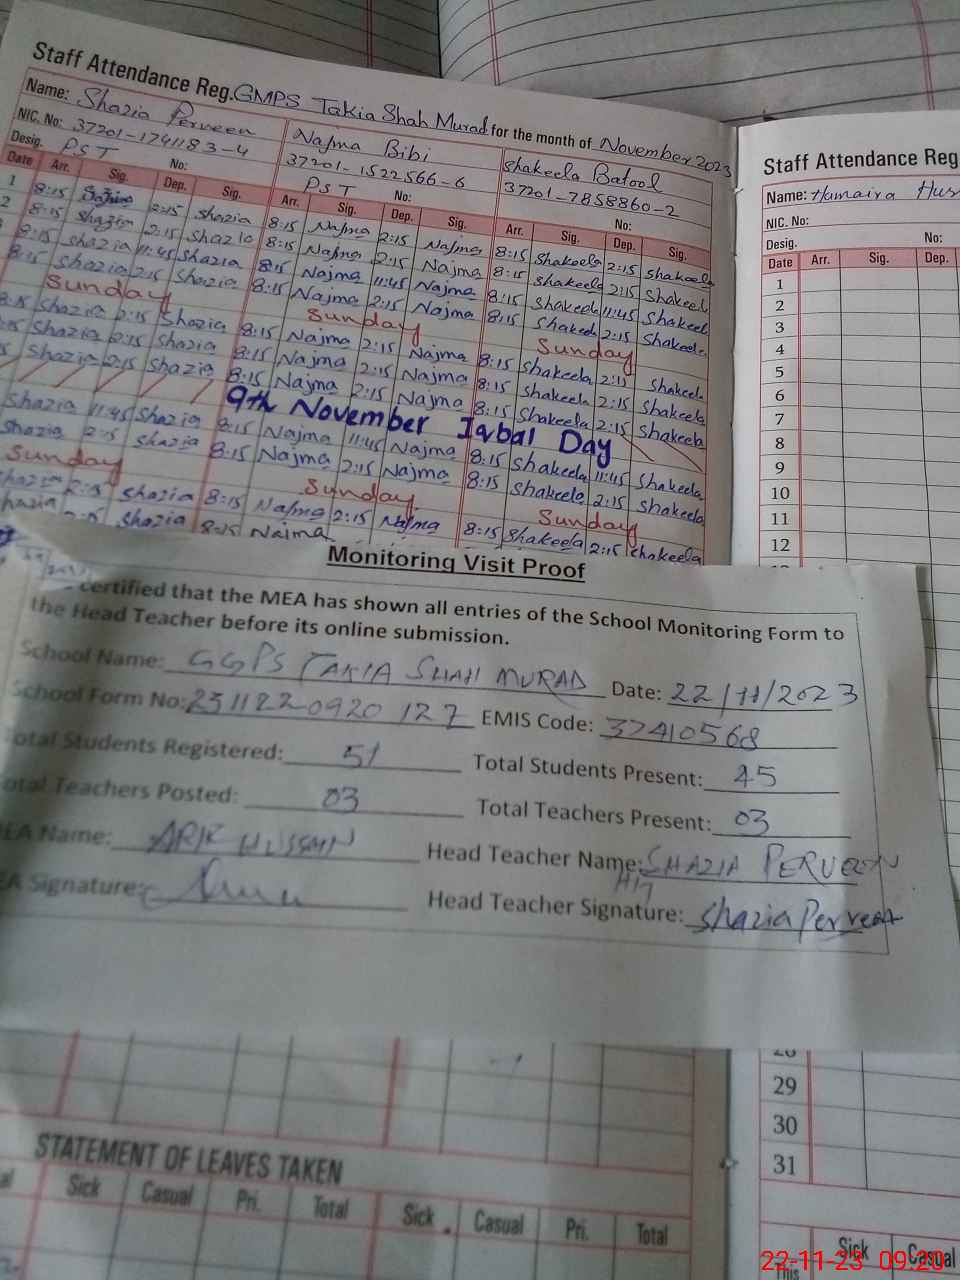 Staff Attendance Reg. GMPS Takia Shah Murad for the month of November 2023
Name: Shazia Perveen Najma Bibi Shakeela Batool
NIC. No: 37201-1741183-4 37201-1522566-6 37201-7858860-2
Desig. PST No: PST No: No:
Date Arr. Sig. Dep. Sig. Arr. Sig. Dep. Sig. Arr. Sig. Dep. Sig.
1 8:15 Shazia 2:15 Shazia 8:15 Najma 2:15 Najma 8:15 Shakeela 2:15 Shakeela
2 8:15 Shazia 2:15 Shazia 8:15 Najma 2:15 Najma 8:15 Shakeela 2:15 Shakeel
8:15 Shazia 11:45 Shazia 8:15 Najma 11:45 Najma 8:15 Shakeela 11:45 Shakeel
8:15 Shazia 2:15 Shazia 8:15 Najma 2:15 Najma 8:15 Shakeela 2:15 Shakeela
Sunday Sunday Sunday
8:15 Shazia 2:15 Shazia 8:15 Najma 2:15 Najma 8:15 Shakeela 2:15 Shakeela
Shazia 2:15 Shazia 8:15 Najma 2:15 Najma 8:15 Shakeela 2:15 Shakeela
Shazia 2:15 Shazia 8:15 Najma 2:15 Najma 8:15 Shakeela 2:15 Shakeela
9th November Iqbal Day
Shazia 11:45 Shazia 8:15 Najma 11:45 Najma 8:15 Shakeela 11:45 Shakeela
Shazia 2:15 Shazia 8:15 Najma 2:15 Najma 8:15 Shakeela 2:15 Shakeela
Sunday Sunday Sunday
Shazia 2:15 Shazia 8:15 Najma 2:15 Najma 8:15 Shakeela 2:15 Shakeela
Shazia 2:15 Shazia 8:15 Najma
Staff Attendance Reg
Name: Humaira Hus
NIC. No:
Desig. No:
Date Arr. Sig. Dep.
1
2
3
4
5
6
7
8
9
10
11
12
Monitoring Visit Proof
certified that the MEA has shown all entries of the School Monitoring Form to
the Head Teacher before its online submission.
School Name: GGPS TAKIA SHAH MURAD Date: 22/11/2023
School Form No: 2311220920127 EMIS Code: 37410568
Total Students Registered: 51 Total Students Present: 45
Total Teachers Posted: 03 Total Teachers Present: 03
MEA Name: HUSSAIN Head Teacher Name: SHAZIA PERVEEN
EA Signature: Head Teacher Signature: Shazia Perveen
29
30
31
STATEMENT OF LEAVES TAKEN
Sick Casual Pri. Total Sick Casual Pri. Total
Sick Casual
This
22-11-23 09:20